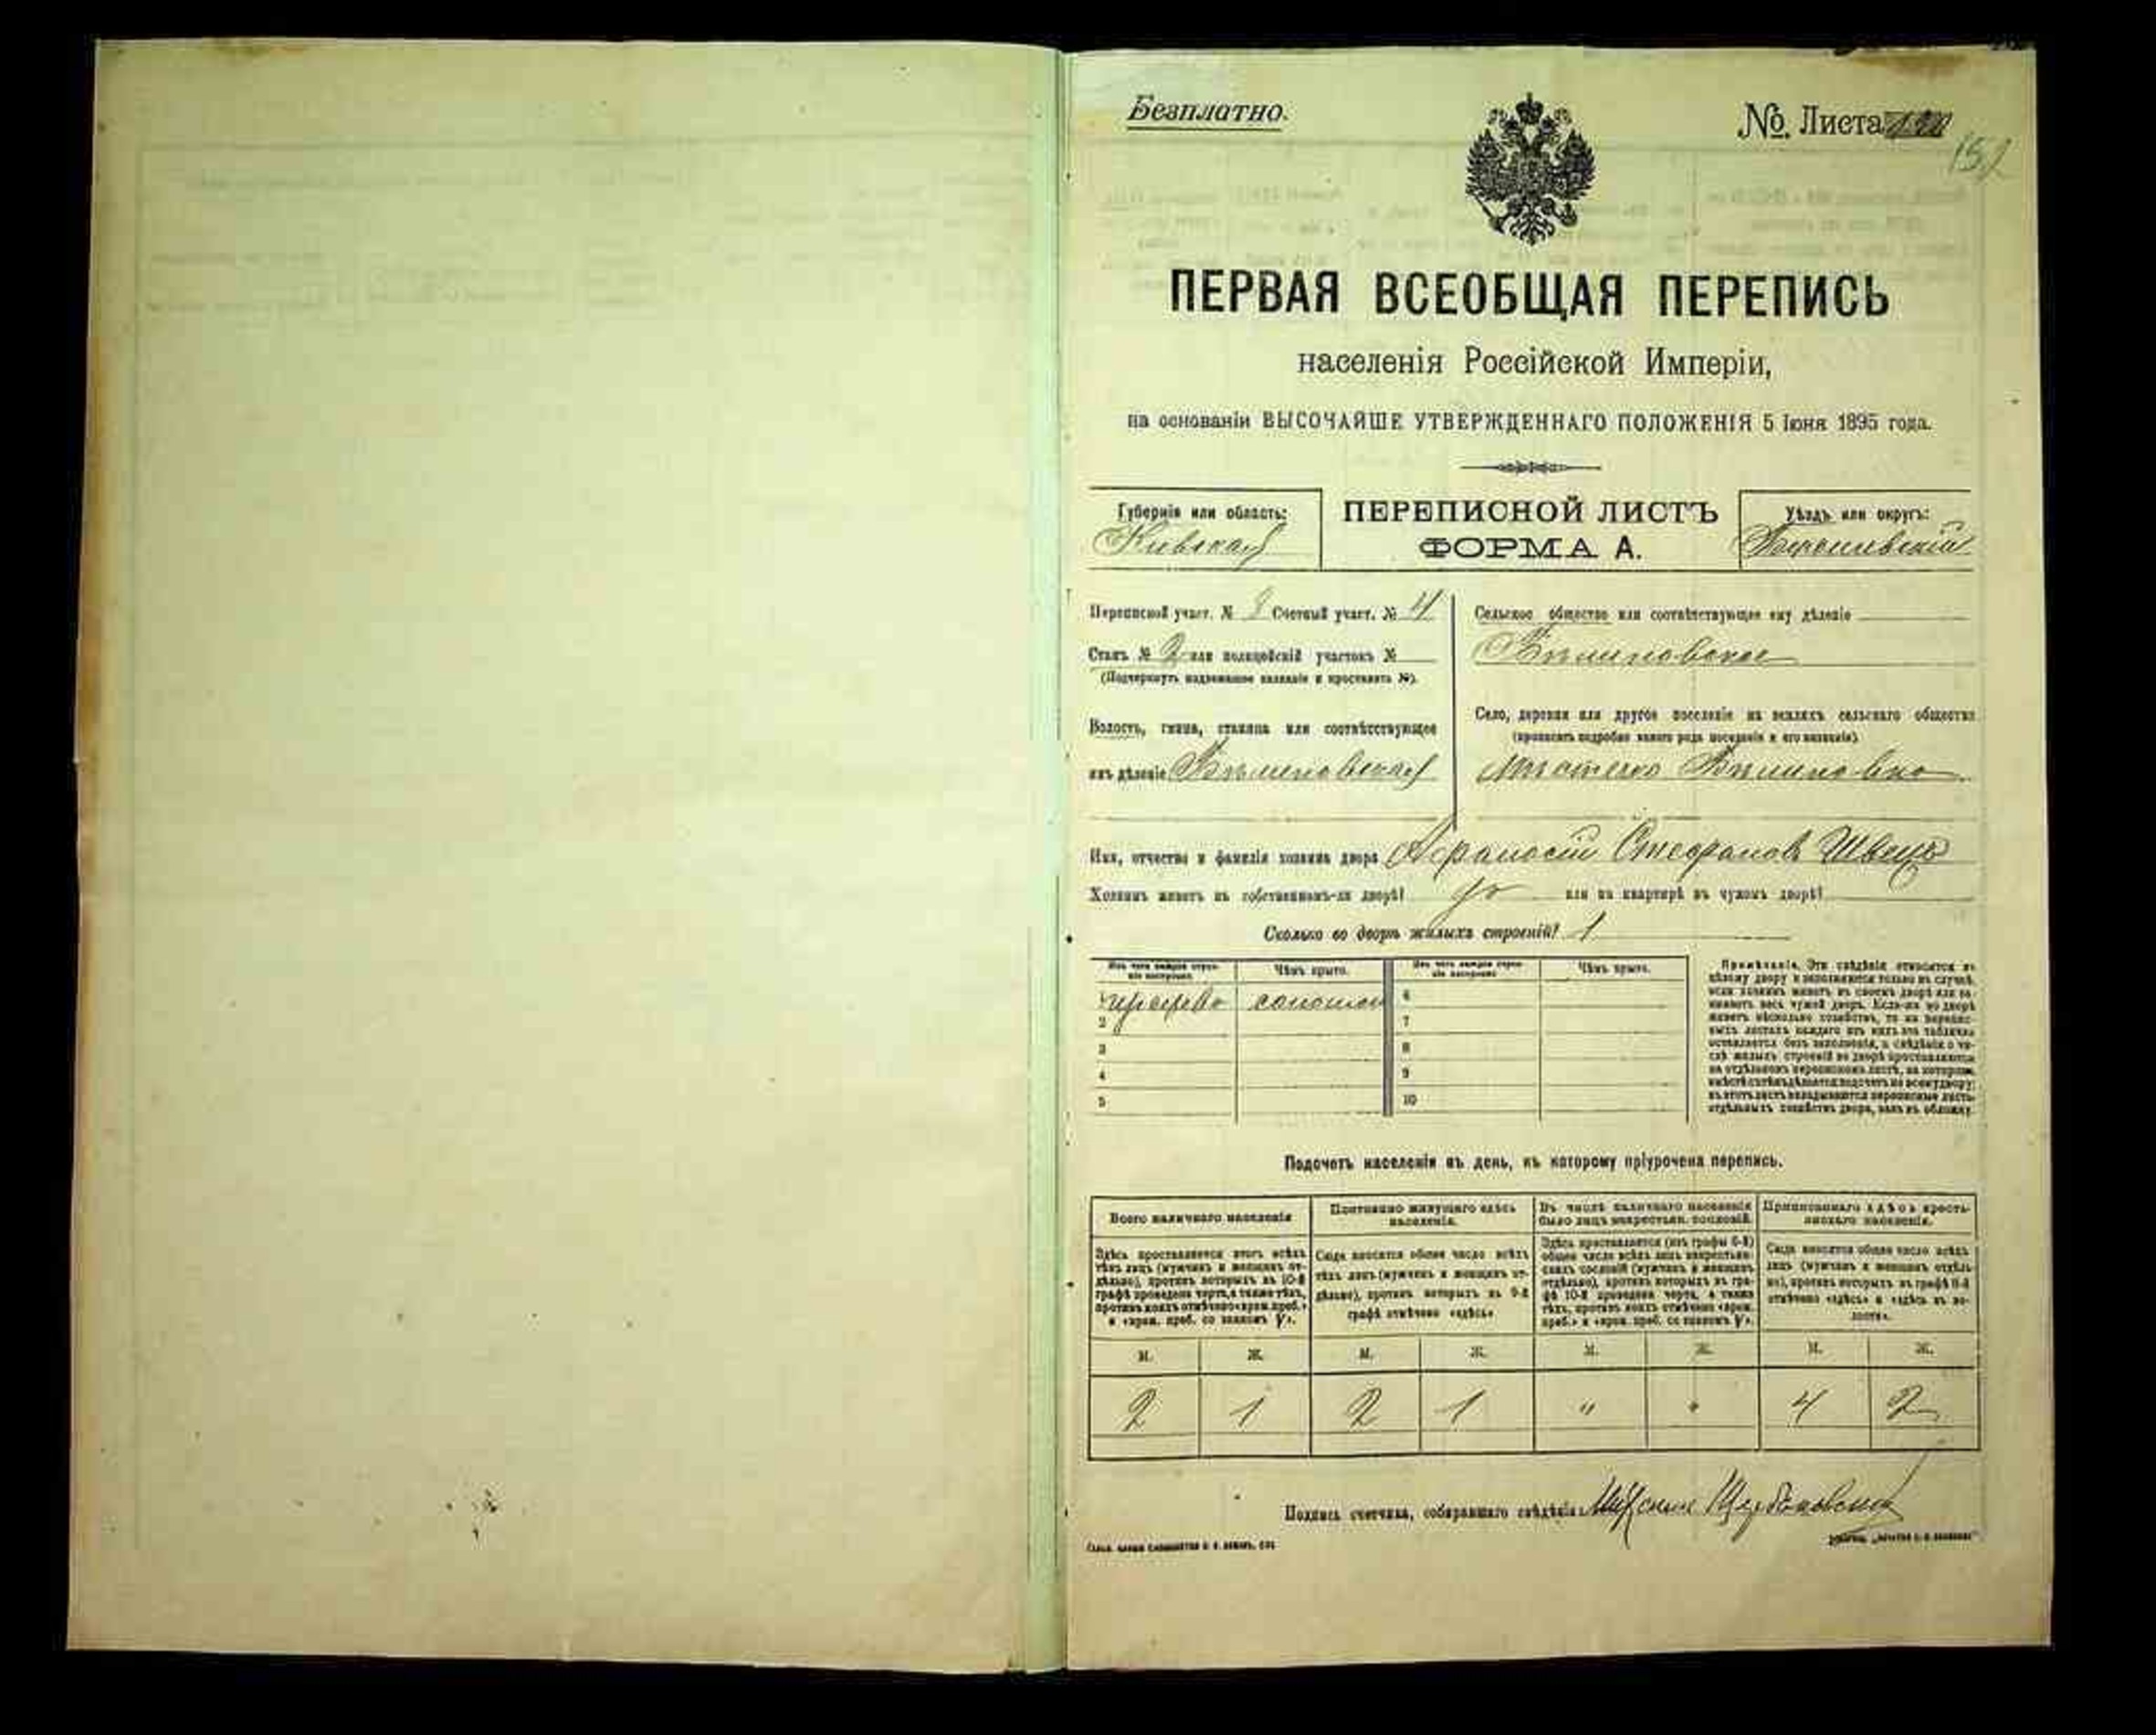 Безплатно.
№ Листа
152
ПЕРВАЯ ВСЕОБЩАЯ ПЕРЕПИСЬ
населенія Россійской Имперіи,
на основаніи ВЫСОЧАЙШЕ УТВЕРЖДЕННАГО ПОЛОЖЕНІЯ 5 Іюня 1895 года.
Губернія или область:
Кіевская
ПЕРЕПИСНОЙ ЛИСТЪ
ФОРМА А.
Уѣздъ или округъ:
Переписной участ. № 3 Счетный участ. № 4
Станъ № 2 или полицейскій участокъ №
(Подчеркнуть надлежащее названіе и проставить №).
Волость, гмина, станица или соотвѣтствующее
имъ дѣленіе
Сельское общество или соотвѣтствующее ему дѣленіе
Село, деревня или другое поселеніе на земляхъ сельскаго общества
(прописать подробно какого рода поселеніе и его названіе)
Мѣстечко
Имя, отчество и фамилія хозяина двора Афанасій Стефановъ Швець
Хозяинъ живетъ въ собственномъ-ли дворѣ? да или въ квартирѣ въ чужомъ дворѣ?
Сколько во дворѣ жилыхъ строеній? 1
Изъ чего каждое строе-
ніе построено.
Чѣмъ крыто.
Изъ чего каждое строе-
ніе построено.
Чѣмъ крыто.
дерева соломой 6
2 7
3 8
4 9
5 10
Примѣчаніе. Эти свѣдѣнія относятся къ
цѣлому двору и заполняются только въ случаѣ,
если хозяинъ живетъ въ своемъ дворѣ или за-
нимаетъ весь чужой дворъ. Если-же во дворѣ
живетъ нѣсколько хозяйствъ, то на перепис-
ныхъ листахъ каждаго изъ нихъ эта табличка
оставляется безъ заполненія, а свѣдѣнія о чи-
слѣ жилыхъ строеній во дворѣ проставляются
на отдѣльномъ переписномъ листѣ, на которомъ
вмѣстѣ съ тѣмъ дѣлается подсчетъ по всему двору;
въ этотъ листъ вкладываются переписные листы
отдѣльныхъ хозяйствъ двора, какъ въ обложку.
Подсчетъ населенія въ день, къ которому пріурочена перепись.
Всего наличнаго населенія
Здѣсь проставляется итогъ всѣхъ
тѣхъ лицъ (мужчинъ и женщинъ от-
дѣльно), противъ которыхъ въ 10-й
графѣ проведена черта, а также тѣхъ,
противъ коихъ отмѣчено «врем. преб.»
и «врем. преб. со знакомъ V».
Постоянно живущаго здѣсь
населенія.
Сюда вносится общее число всѣхъ
тѣхъ лицъ (мужчинъ и женщинъ от-
дѣльно), противъ которыхъ въ 9-й
графѣ отмѣчено «здѣсь»
Въ числѣ наличнаго населенія
было лицъ некрестьян. сословій.
Здѣсь проставляется (изъ графы 6-й)
общее число всѣхъ лицъ некрестьян-
скихъ сословій (мужчинъ и женщинъ
отдѣльно), противъ которыхъ въ гра-
фѣ 10-й проведена черта, а также
тѣхъ, противъ коихъ отмѣчено «врем.
преб.» и «врем. преб. со знакомъ V».
Приписаннаго здѣсь кресть-
янскаго населенія.
Сюда вносится общее число всѣхъ
лицъ (мужчинъ и женщинъ отдѣль-
но), противъ которыхъ въ графѣ 8-й
отмѣчено «здѣсь» и «здѣсь въ во-
лости».
М. Ж. М. Ж. М. Ж. М. Ж.
2 1 2 1 " " 4 2
Подпись счетчика, собиравшаго свѣдѣнія: